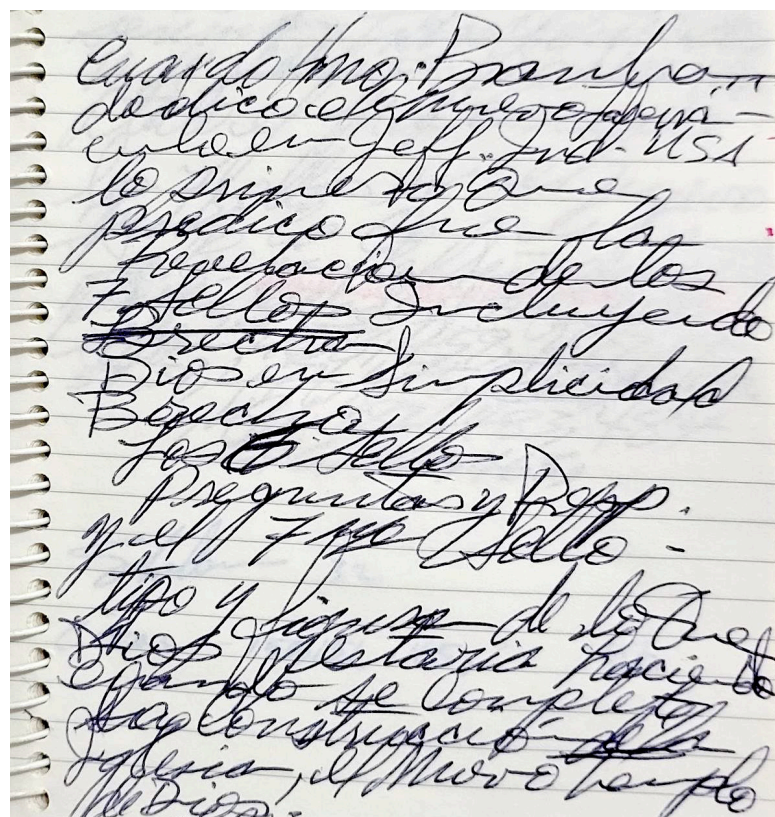 Cuando Hno. Branham
dedico el Nuevo Taberná-
culo en Jeff. Ind. USA
lo primero que
predico fue la
Revelacion de los
7 Sellos Incluyendo
Brecha
Dios en Simplicidad
Brecha,
Los 6 Sellos
Preguntas y Resp.
y el 7mo Sello -
tipo y figura de lo que
Dios estaria haciendo
cuando se complete
la construcción de la
Iglesia, el Nuevo templo
de Dios.